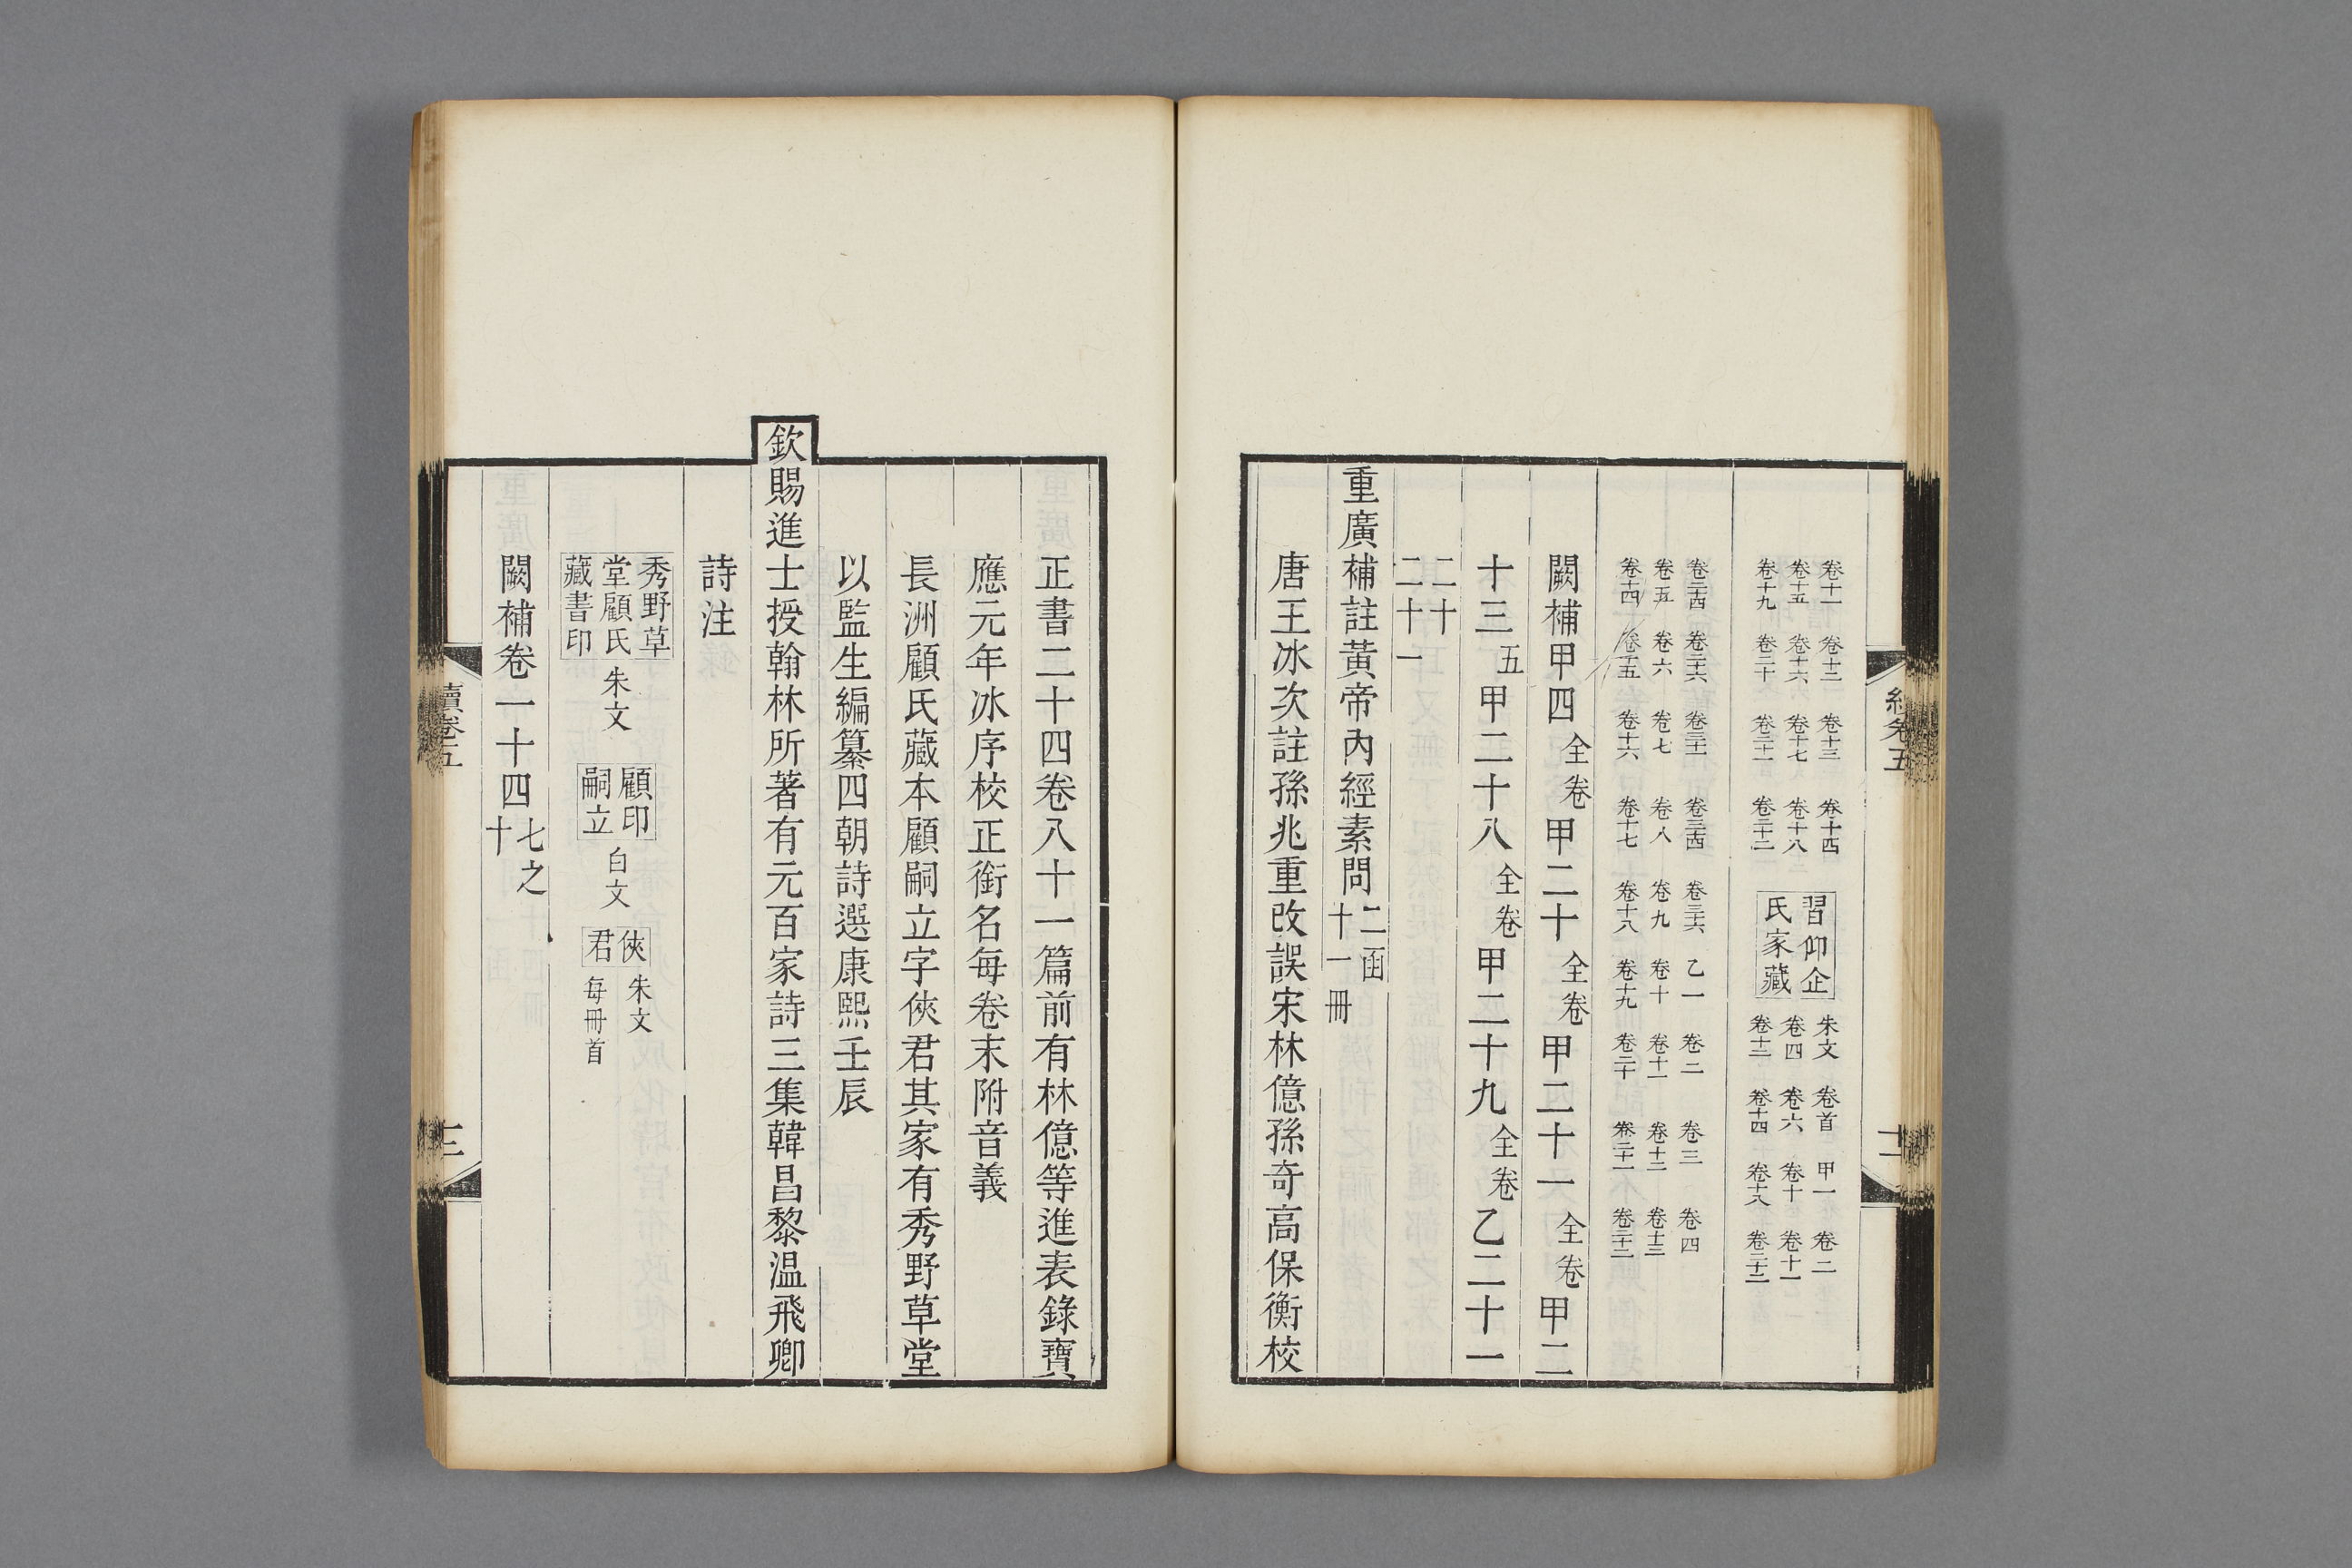 卷十一 卷十二 卷十三 卷十四
卷十五 卷十六 卷十七 卷十八
卷十九 卷二十 卷二十一 卷二十二
習仰企
氏家藏
朱文 卷首 甲一 卷二
卷四 卷六 卷十 卷十一
卷十二 卷十四 卷十八 卷二十二
卷二十四 卷二十六 卷三十一 卷三十四 卷三十六 乙一 卷二 卷三 卷四
卷五 卷六 卷七 卷八 卷九 卷十 卷十一 卷十二 卷十三
卷十四 卷十五 卷十六 卷十七 卷十八 卷十九 卷二十 卷二十一 卷二十二
闕補甲四全卷甲二十全卷甲二十一全卷甲二
十三五甲二十八全卷甲二十九全卷乙二十一
二十
二十一
重廣補註黃帝內經素問二函十一冊
唐王冰次註孫兆重改誤宋林億孫奇高保衡校
正書二十四卷八十一篇前有林億等進表錄寶
應元年冰序校正銜名每卷末附音義
長洲顧氏藏本顧嗣立字俠君其家有秀野草堂
以監生編纂四朝詩選康熙壬辰
欽賜進士授翰林所著有元百家詩三集韓昌黎温飛卿
詩注
秀野草
堂顧氏
藏書印
朱文
顧印
嗣立
白文
俠
君
朱文
每冊首
闕補卷一十四七之十
續卷五
十三